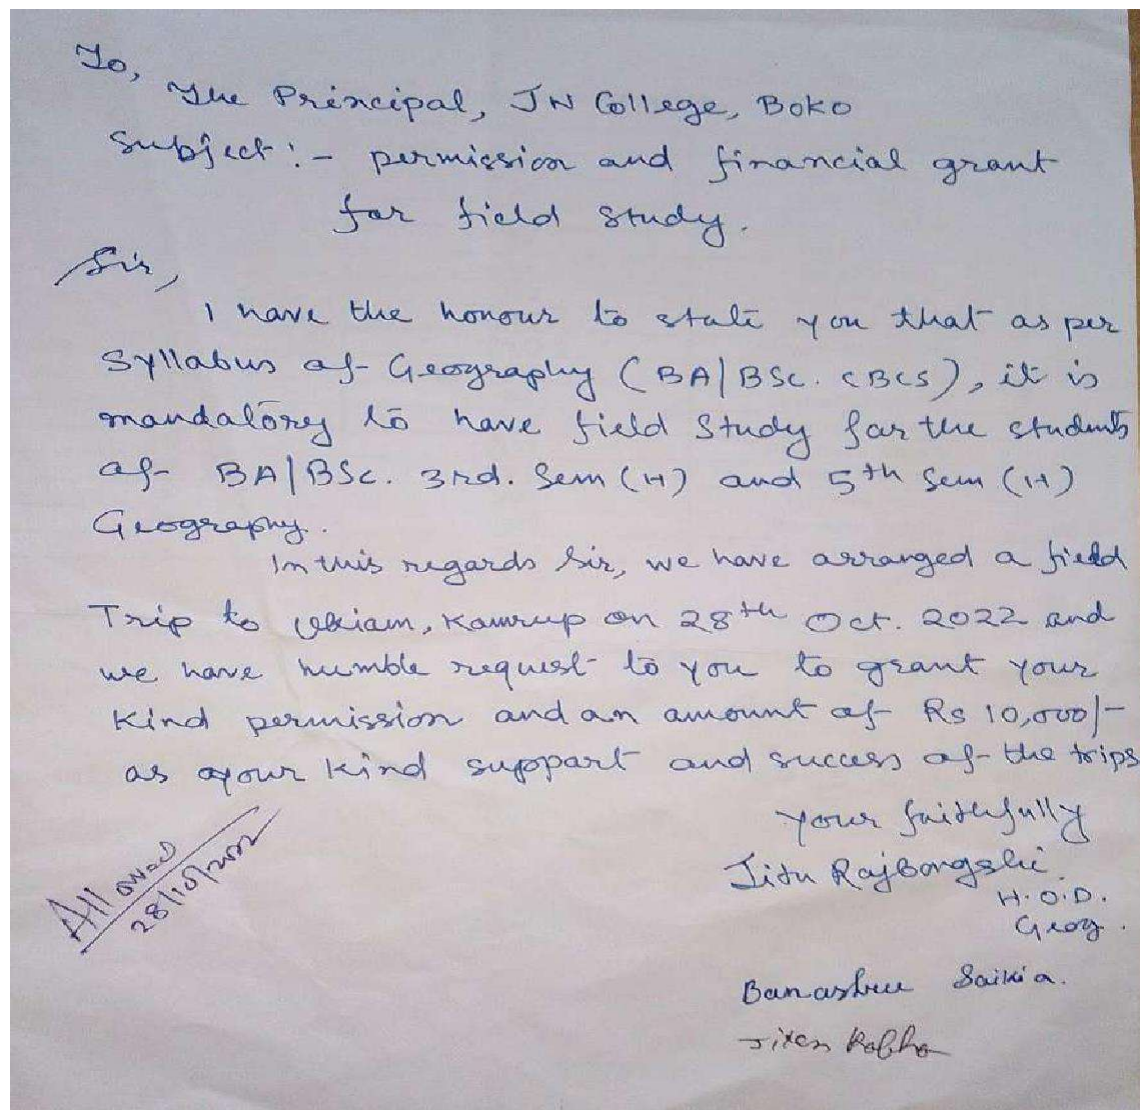 To,
The Principal, JN College, Boko
Subject:- permission and financial grant
for field study.
Sir,
I have the honour to state you that as per
Syllabus of Geography (BA/BSc. CBCS), it is
mandatory to have field study for the students
of BA/BSc. 3rd. Sem (H) and 5th Sem (H)
Geography.
In this regards Sir, we have arranged a field
Trip to Ukiam, Kamrup on 28th Oct. 2022 and
we have humble request to you to grant your
kind permission and an amount of Rs 10,000/-
as your kind support and success of the trips
Your faithfully
Jitu Rajbongshi.
H.O.D.
Geog.
Allowed
28/10/2022
Banashree Saikia.
Jiten Rabha